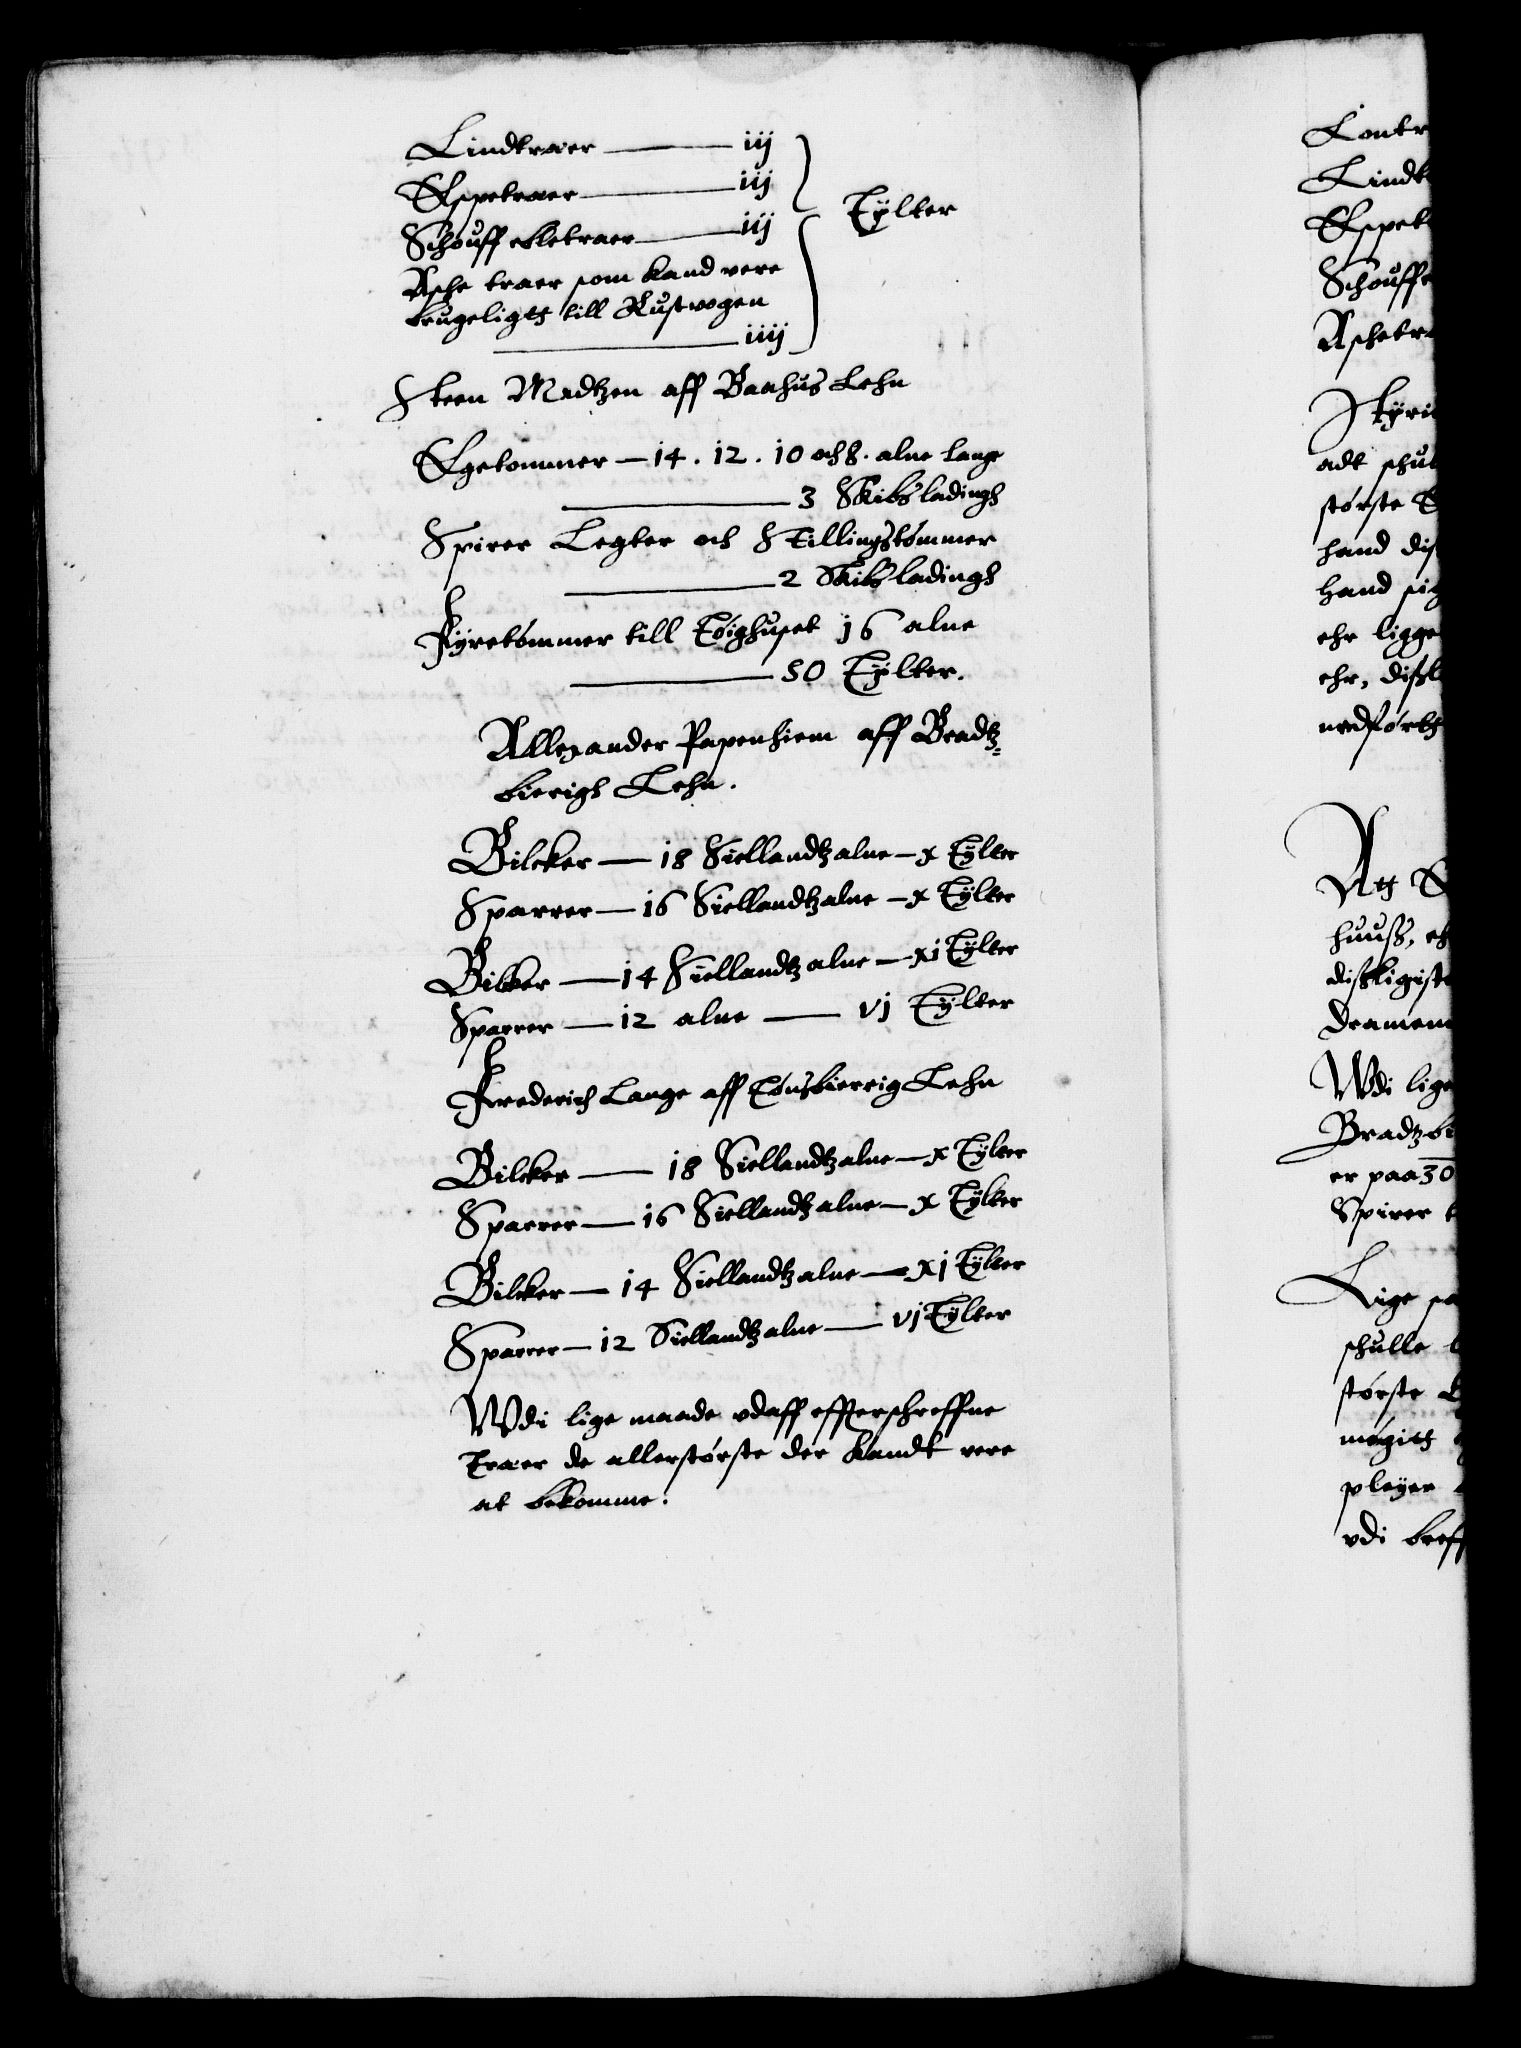 Lindtræer — iij
Espetræer — iij
Schouff ebletræer — iij
Tylter
Asche træer som kand vere
brugeligts till Rustwogen
— iiij
Steen Madtzen aff Baahus Lehn
Egetommer — 14 . 12 . 10 och 8 . alne lange
— 3 Skibs ladingh
Spirer Legter och Stillingstømmer
— 2 Skibs ladingh
Fyretømmer till Tøighuset 16 alne
— 50 Tylter.
Allexander Papenhiem aff Bradtz-
bierigh Lehn.
Bilcker — 18 Siellandtz alne — x Tylter
Sparrer — 16 Siellandtz alne — x Tylter
Bilker — 14 Siellandtz alne — xi Tylter
Sparrer — 12 alne — vj Tylter
Frederich Lange aff Tønsbierrig Lehn
Bilcker — 18 Siellandtz alne — x Tylter
Sparrer — 16 Siellandtz alne — x Tylter
Bilcker — 14 Siellandtz alne — xj Tylter
Sparrer — 12 Siellandtz alne — vj Tylter
Wdi lige maade udaff effterschreffne
Træer de allerstørste der kandt vere
at bekomme.
Lindt
Espet
Schouffe
Aschetr
adt schul
største
hand
hand sig
ehr ligge
ehr,
nedførts
huuss,
Dramen
Wdi lige
Bradzbi
er paa 30
Spirer
Lige
schulle
største
pleyer
udi